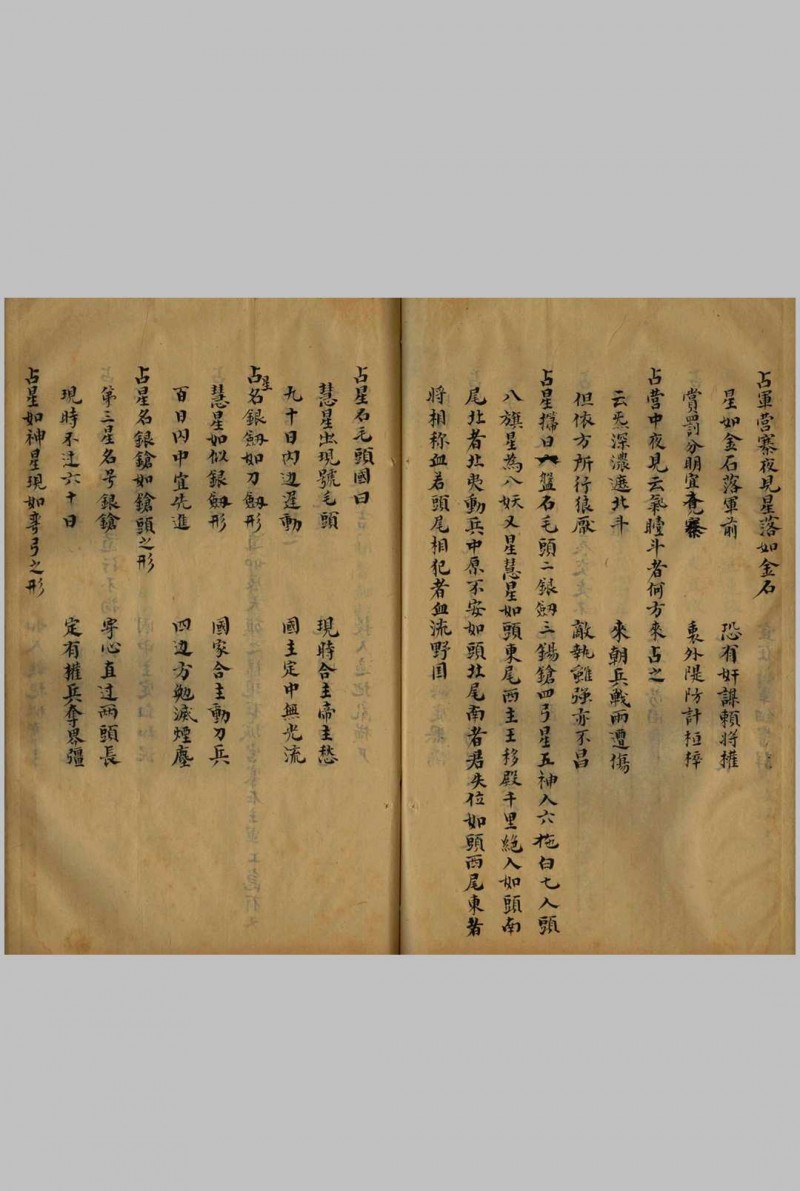 占軍營寨夜見星落如金石
星如金石落軍前　恐有奸謀賴將權
賞罰分明宜 寨　裏外隄防計 
占营中夜見云氣瞳斗者何方來占之
云炁深濃遮北斗　來朝兵戰雨遭傷
但依方所行狼 　敵執雖强亦不昌
占星 曰 盤石毛頭二銀劔三鍚鎗四弓星五神人六拖白七人頭
八旗星為八妖又星慧星如頭東尾西主王移殿千里絶人如頭南
尾北者北夷動兵中原不安如頭北尾南者君失位如頭西尾東者
將相称血若頭尾相犯者血流野国
占星石毛頭國曰
慧星出現號毛頭　現時合主帝主愁
九十日內边遅動　國主定中無光流
占星名銀劔如刀劔形
慧星如似銀劔形　國家合主動刀兵
百日內中宜先進　四边方勉滅煙塵
占星名銀鎗如鎗頭之形
第三星名号銀鎗　寕心直过兩頭長
現時不过六十日　定有權兵奪界疆
占星如神星現如 弓之形